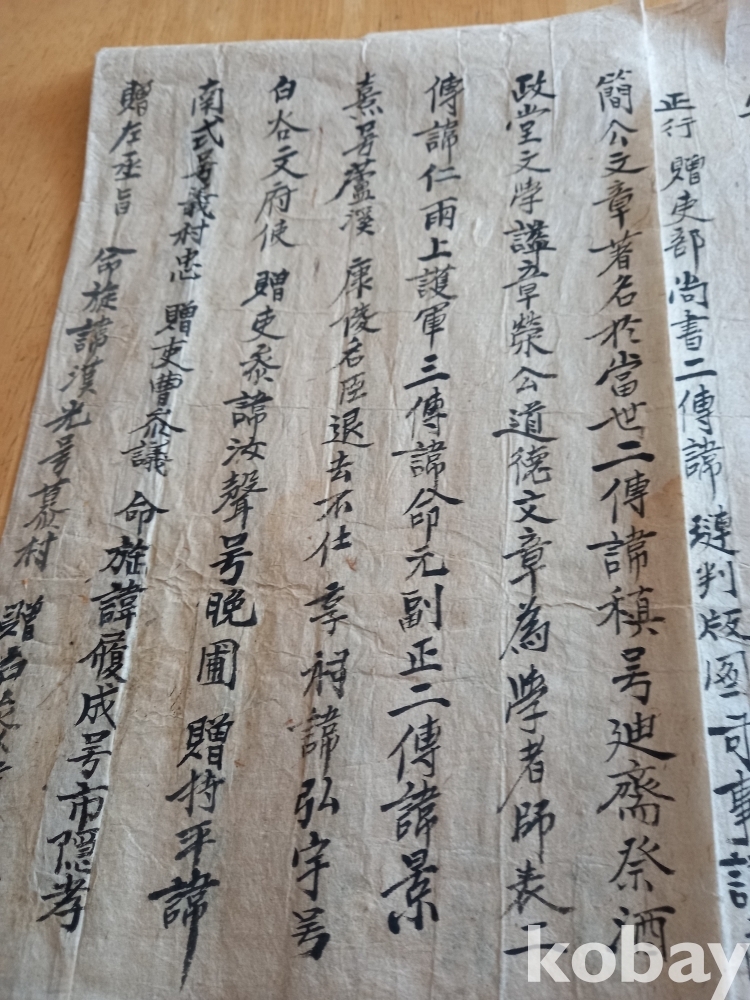 正行 贈吏部尚書二傳諱璉判版圖司事諡
簡公文章著名於當世二傳諱稹号廸齋祭酒
政堂文學諡章榮公道德文章為學者師表二
傳諱仁雨上護軍三傳諱命元副正二傳諱景
熹号蘆溪 康陵名臣退去不仕享祠諱弘宇号
白谷文府使 贈吏叅諱汝聲号晩圃 贈持平諱
南式号義村忠 贈吏曹叅議 命旋諱履成号市隱孝
贈左丞旨 命旋諱漢光号慕村 贈
kobay